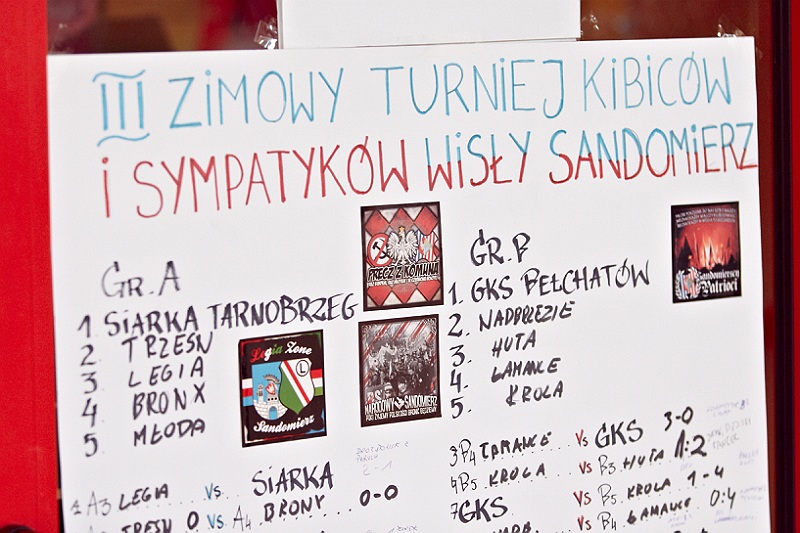 III ZIMOWY TURNIEJ KIBICÓW
I SYMPATYKÓW WISŁY SANDOMIERZ
GR. A
1. SIARKA TARNOBRZEG
2. TRZESN
3. LEGIA
4 BRONX
5 MŁODA
Legia Zone
L
Sandomierz
PRECZ Z KOMUNĄ
NARODOWY SANDOMIERZ
GR. B
1. GKS BEŁCHATÓW
2. NADBRZEZIE
3. HUTA
4. ŁAMAŃCE
5. KROLA
Sandomierscy
Patrioci
A3 LEGIA VS. SIARKA
2-1
TRESN 0 VS A4 BRONY 0-0
3B4 ŁAMAŃCE VS GKS 3-0
4B5 KROLA VS B3 HUTA 1:2
7 GKS VS B5 KROLA 1-4
VS B4 ŁAMAŃCE 0:4